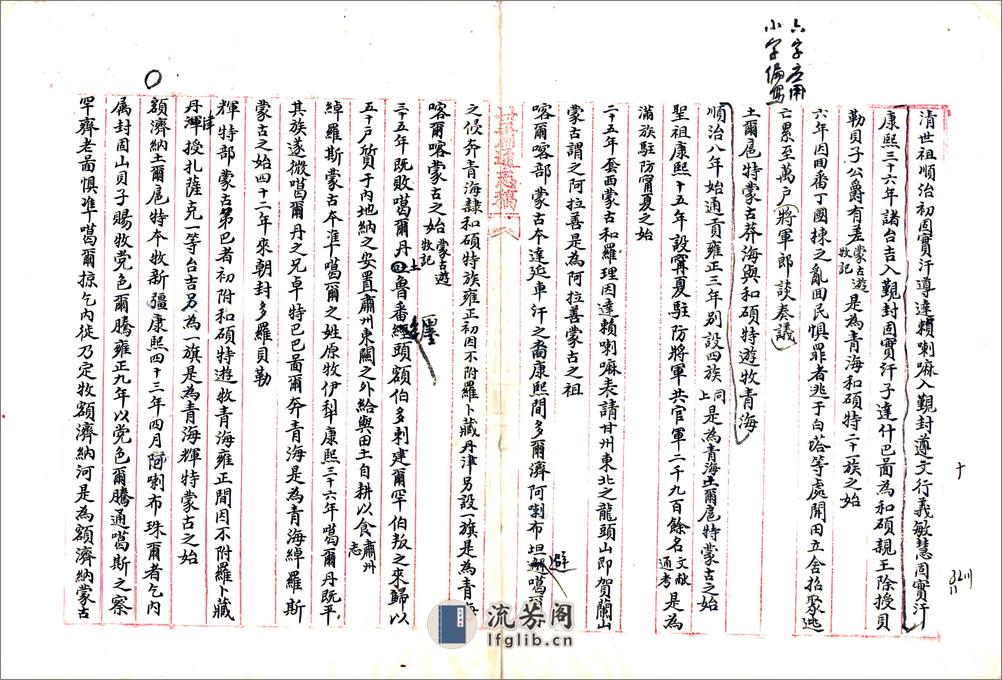 六字應用
小字偏寫
清世祖順治初固實汗導達賴喇嘛入覲封遵文行義敏慧固實汗
康熙三十六年諸台吉入覲封固實汗子達什巴圖為和碩親王除授貝
勒貝子公爵有差蒙古遊牧記是為青海和碩特二十一族之始
六年因回番丁國棟之亂回民懼罪者逃于白塔等處開田立舍招聚逃
亡累至萬戶將軍郎談奏議
土爾扈特蒙古莽海與和碩特遊牧青海
順治八年始通貢雍正三年別設四族同上是為青海土爾扈特蒙古之始
聖祖康熙十五年設寧夏駐防將軍共官軍二千九百餘名文献通考是為
滿族駐防甯夏之始
二十五年套西蒙古和羅理因達賴喇嘛表請甘州東北之龍頭山即賀蘭山
蒙古謂之阿拉善是為阿拉善蒙古之祖
喀爾喀部蒙古本達延車汗之裔康熙間多爾濟阿喇布坦避噶爾丹
甘肅通志稿
之侵奔青海隸和碩特族雍正初因不附羅卜藏丹津另設一旗是為青海
喀爾喀蒙古之始蒙古遊牧記
三十五年既敗噶爾丹土魯番纒頭額伯多剌建爾罕伯叛之來歸以
五十戶質于內地納之安置肅州東關之外給與田土自耕以食肅州志
綽羅斯蒙古本準噶爾之姓原牧伊犁康熙三十六年噶爾丹既平
其族遂微噶爾丹之兄卓特巴巴圖爾奔青海是為青海綽羅斯
蒙古之始四十二年來朝封多羅貝勒
輝特部蒙古第巴者初附和碩特遊牧青海雍正間因不附羅卜藏
丹津授扎薩克一等台吉另為一旗是為青海輝特蒙古之始
額濟納土爾扈特本牧新疆康熙四十三年四月阿喇布珠爾者乞內
属封固山貝子賜牧党色爾騰雍正九年以党色爾騰通噶斯之察
罕齊老圖懼準噶爾掠乞內徙乃定牧額濟納河是為額濟納蒙古
十
流芳阁
lfglib.cn